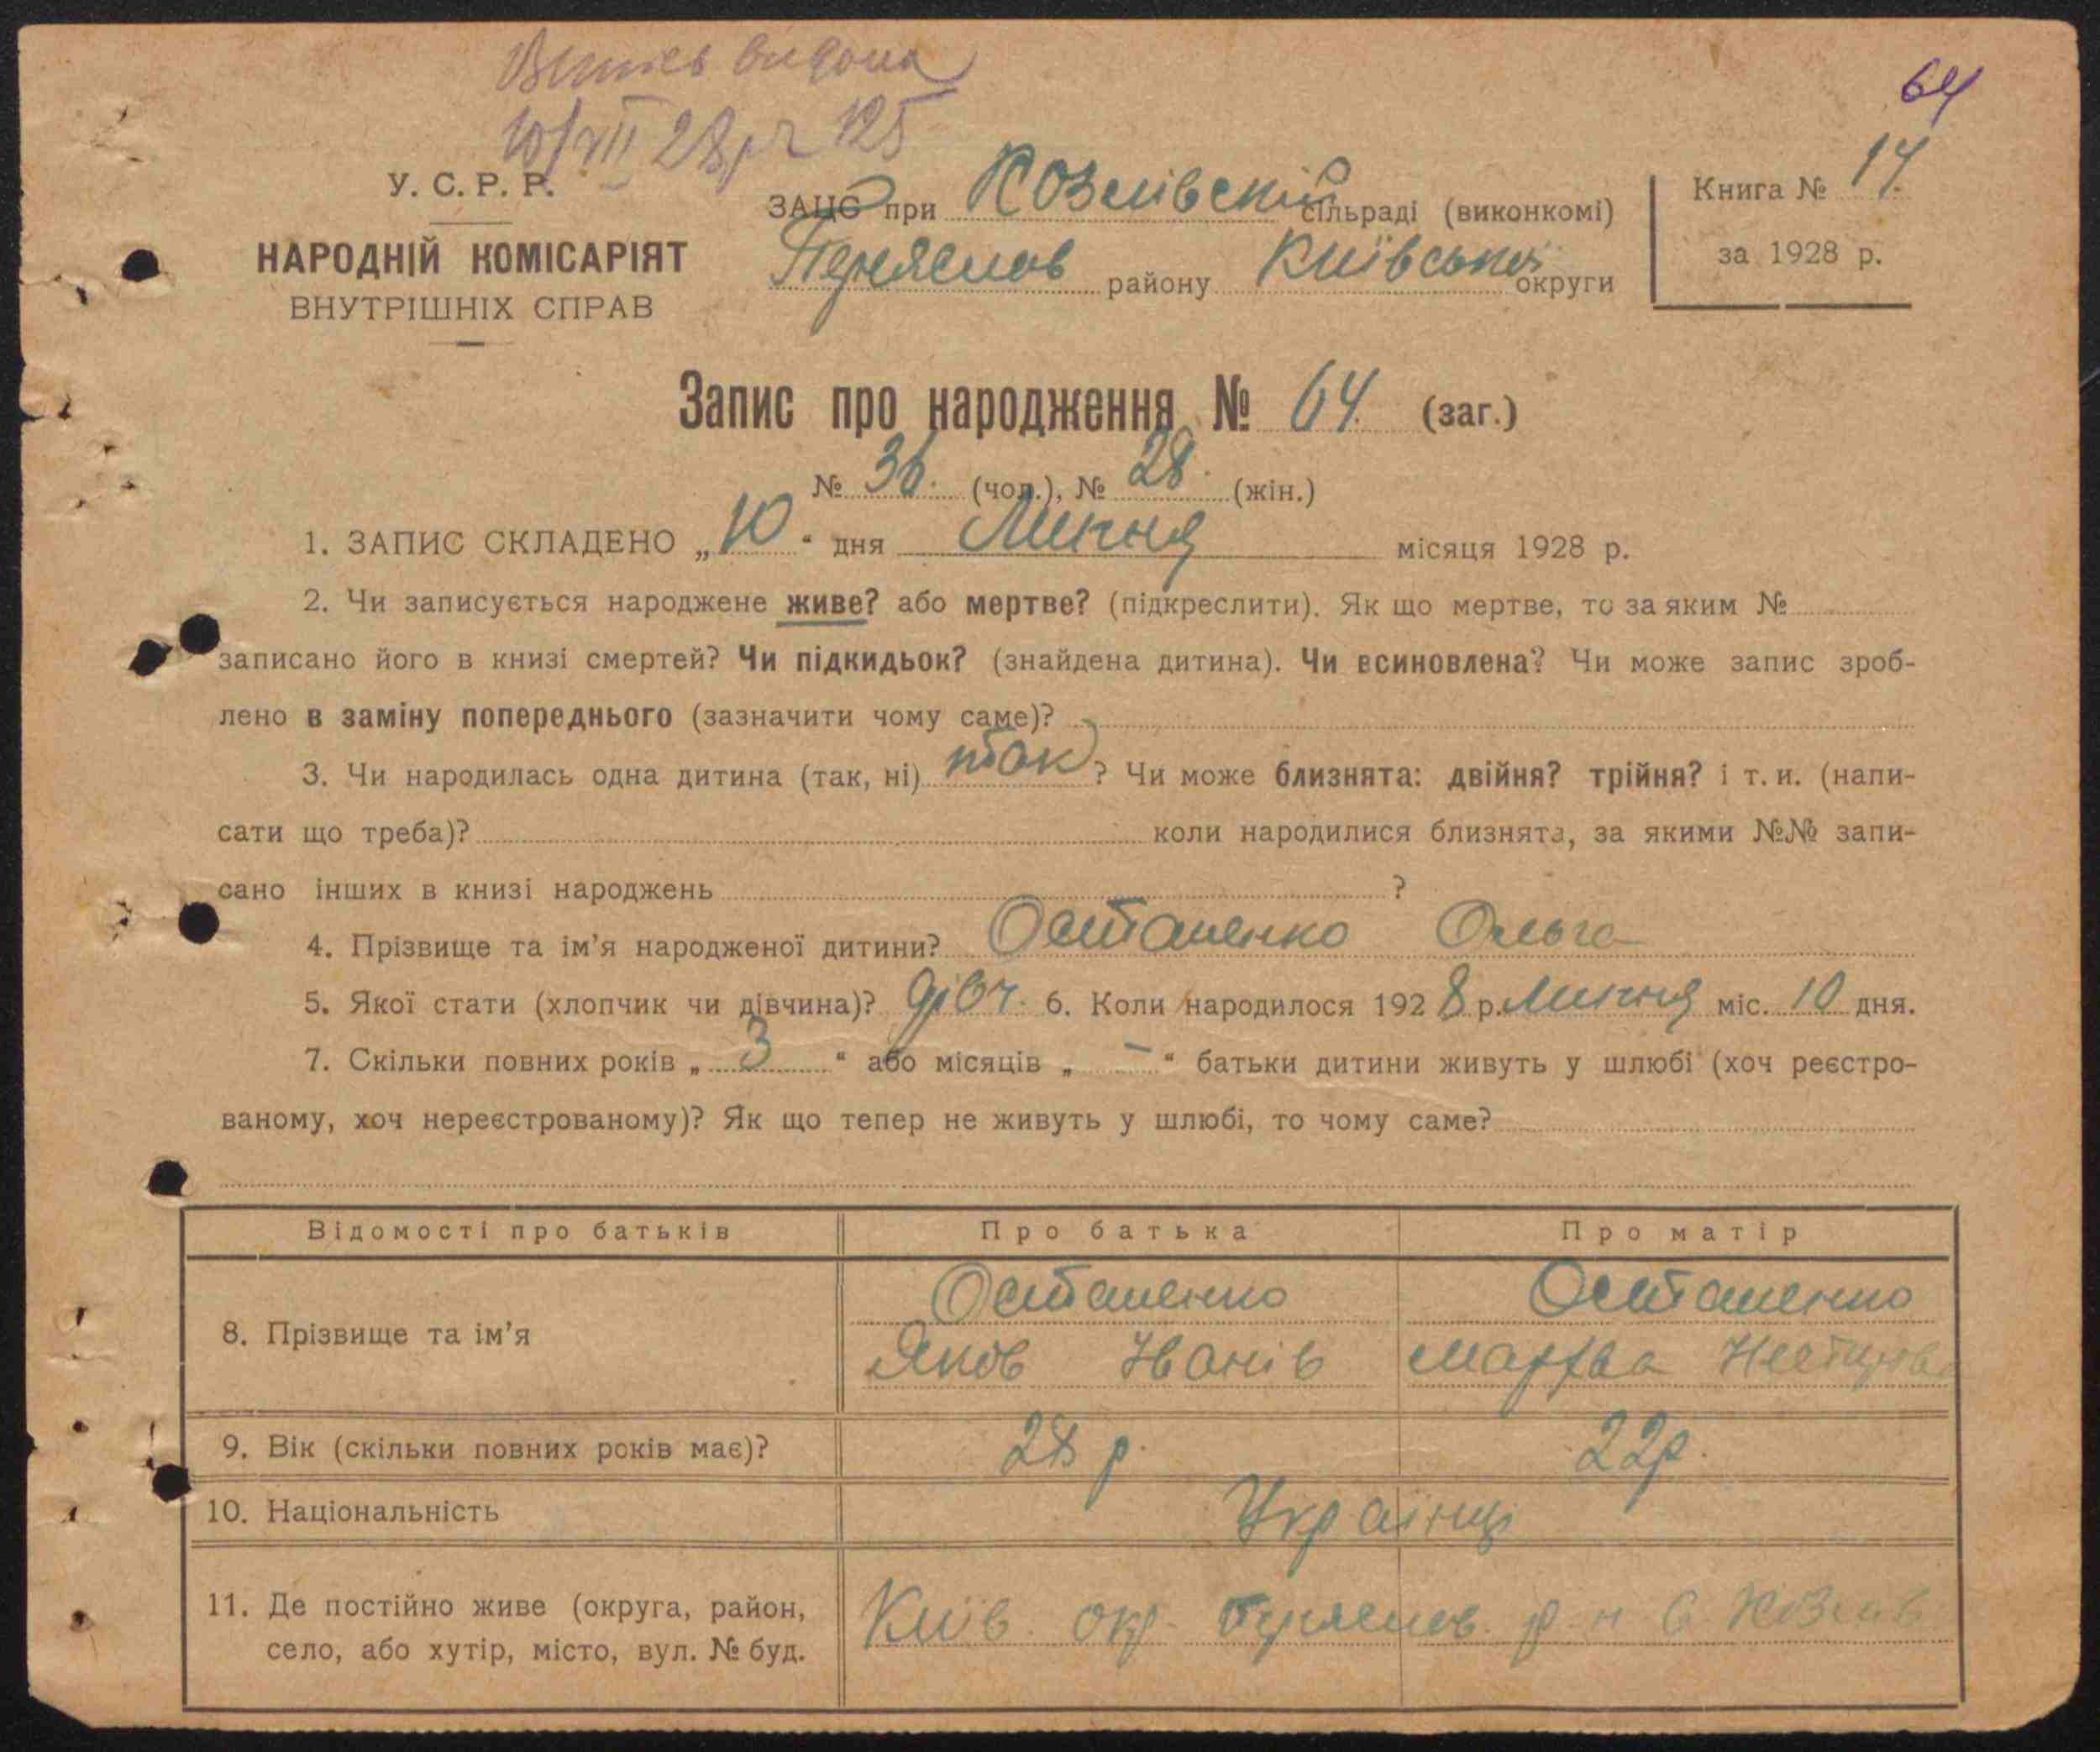 64
10/VII 28 р № 125
У. С. Р. Р.
НАРОДНІЙ КОМІСАРІЯТ
ВНУТРІШНІХ СПРАВ
ЗАЦС при Козлівскій сільраді (виконкомі)
Переяслов району Київської округи
Книга № 14
за 1928 р.
Запис про народження № 64 (заг.)
№ 36. (чол.), № 28. (жін.)
1. ЗАПИС СКЛАДЕНО „10“ дня Липня місяця 1928 р.
2. Чи записується народжене живе? або мертве? (підкреслити). Як що мертве, то за яким №
записано його в книзі смертей? Чи підкидьок? (знайдена дитина). Чи всиновлена? Чи може запис зроб-
лено в заміну попереднього (зазначити чому саме)?
3. Чи народилась одна дитина (так, ні) так? Чи може близнята: двійня? трійня? і т. и. (напи-
сати що треба)? коли народилися близнята, за якими №№ запи-
сано інших в книзі народжень ?
4. Прізвище та ім’я народженої дитини? Осташенко Ольга
5. Якої стати (хлопчик чи дівчина)? дівч. 6. Коли народилося 1928 р. Липня міс. 10 дня.
7. Скільки повних років „ 3 “ або місяців „ – “ батьки дитини живуть у шлюбі (хоч реєстро-
ваному, хоч нереєстрованому)? Як що тепер не живуть у шлюбі, то чому саме?
Відомості про батьків Про батька Про матір
8. Прізвище та ім’я Осташенко Осташенко
Яков Іванів Марфа
9. Вік (скільки повних років має)? 28 р. 22 р.
10. Національність Українці
11. Де постійно живе (округа, район,
село, або хутір, місто, вул. № буд.
Київ. окр. Переяслов. р-н С. Козлів